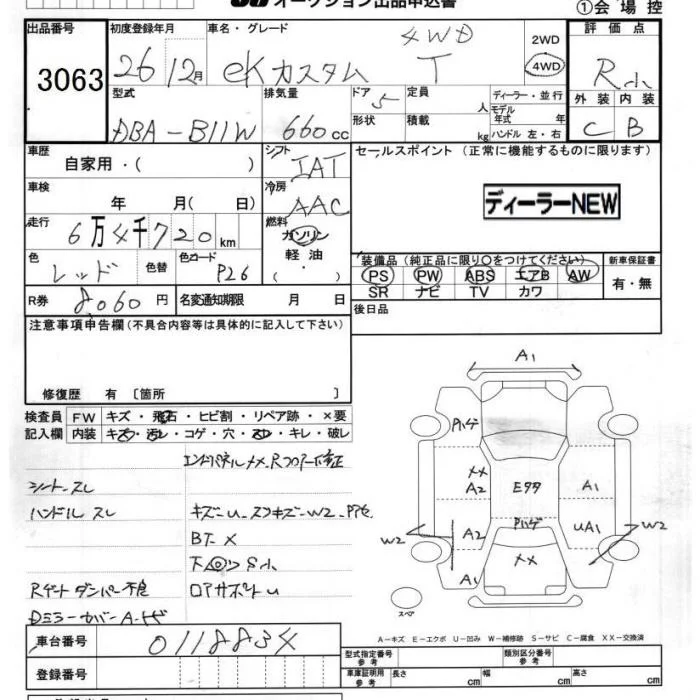 オークション出品申込書
①会場控
出品番号 初度登録年月 車名・グレード 評価点
3063 26 12月 eKカスタム 4WD T 2WD 4WD R小
型式 排気量 ドア 定員 ディーラー・並行 外装 内装
DBA-B11W 660cc 5 人 モデル年式 年 C B
形状 積載 kg ハンドル 左・右
車歴 自家用・( ) シフト IAT セールスポイント (正常に機能するものに限ります)
車検 年 月( 日) 冷房 AAC ディーラーNEW
走行 6万4千720km 燃料 ガソリン
軽油・( )
色 レッド 色替 色コード P26 装備品(純正品に限り○をつけてください) 新車保証書
PS PW ABS エアB AW 有・無
SR ナビ TV カワ
R券 8060円 名変通知期限 月 日 後日品
注意事項申告欄(不具合内容等は具体的に記入して下さい)
修復歴 有 〔箇所 〕
検査員 FW キズ・飛石・ヒビ割・リペア跡・×要
記入欄 内装 キズ・汚レ・コゲ・穴・スレ・キレ・破レ
シートスレ
ハンドルスレ
BT X
下回りS小
ロアサポートU
Rゲートダンパー不良
DミラーカバーA
A1
Pハゲ
XX
A2 Eタタ A1
Pハゲ
W2 A2 UA1 W2
XX
A1
スペア
A-キズ E-エクボ U-凹み W-補修跡 S-サビ C-腐食 XX-交換済
車台番号 0118834
型式指定番号 参考 類別区分番号 参考
登録番号 車庫証明用 参考 長さ cm 幅 cm 高さ cm